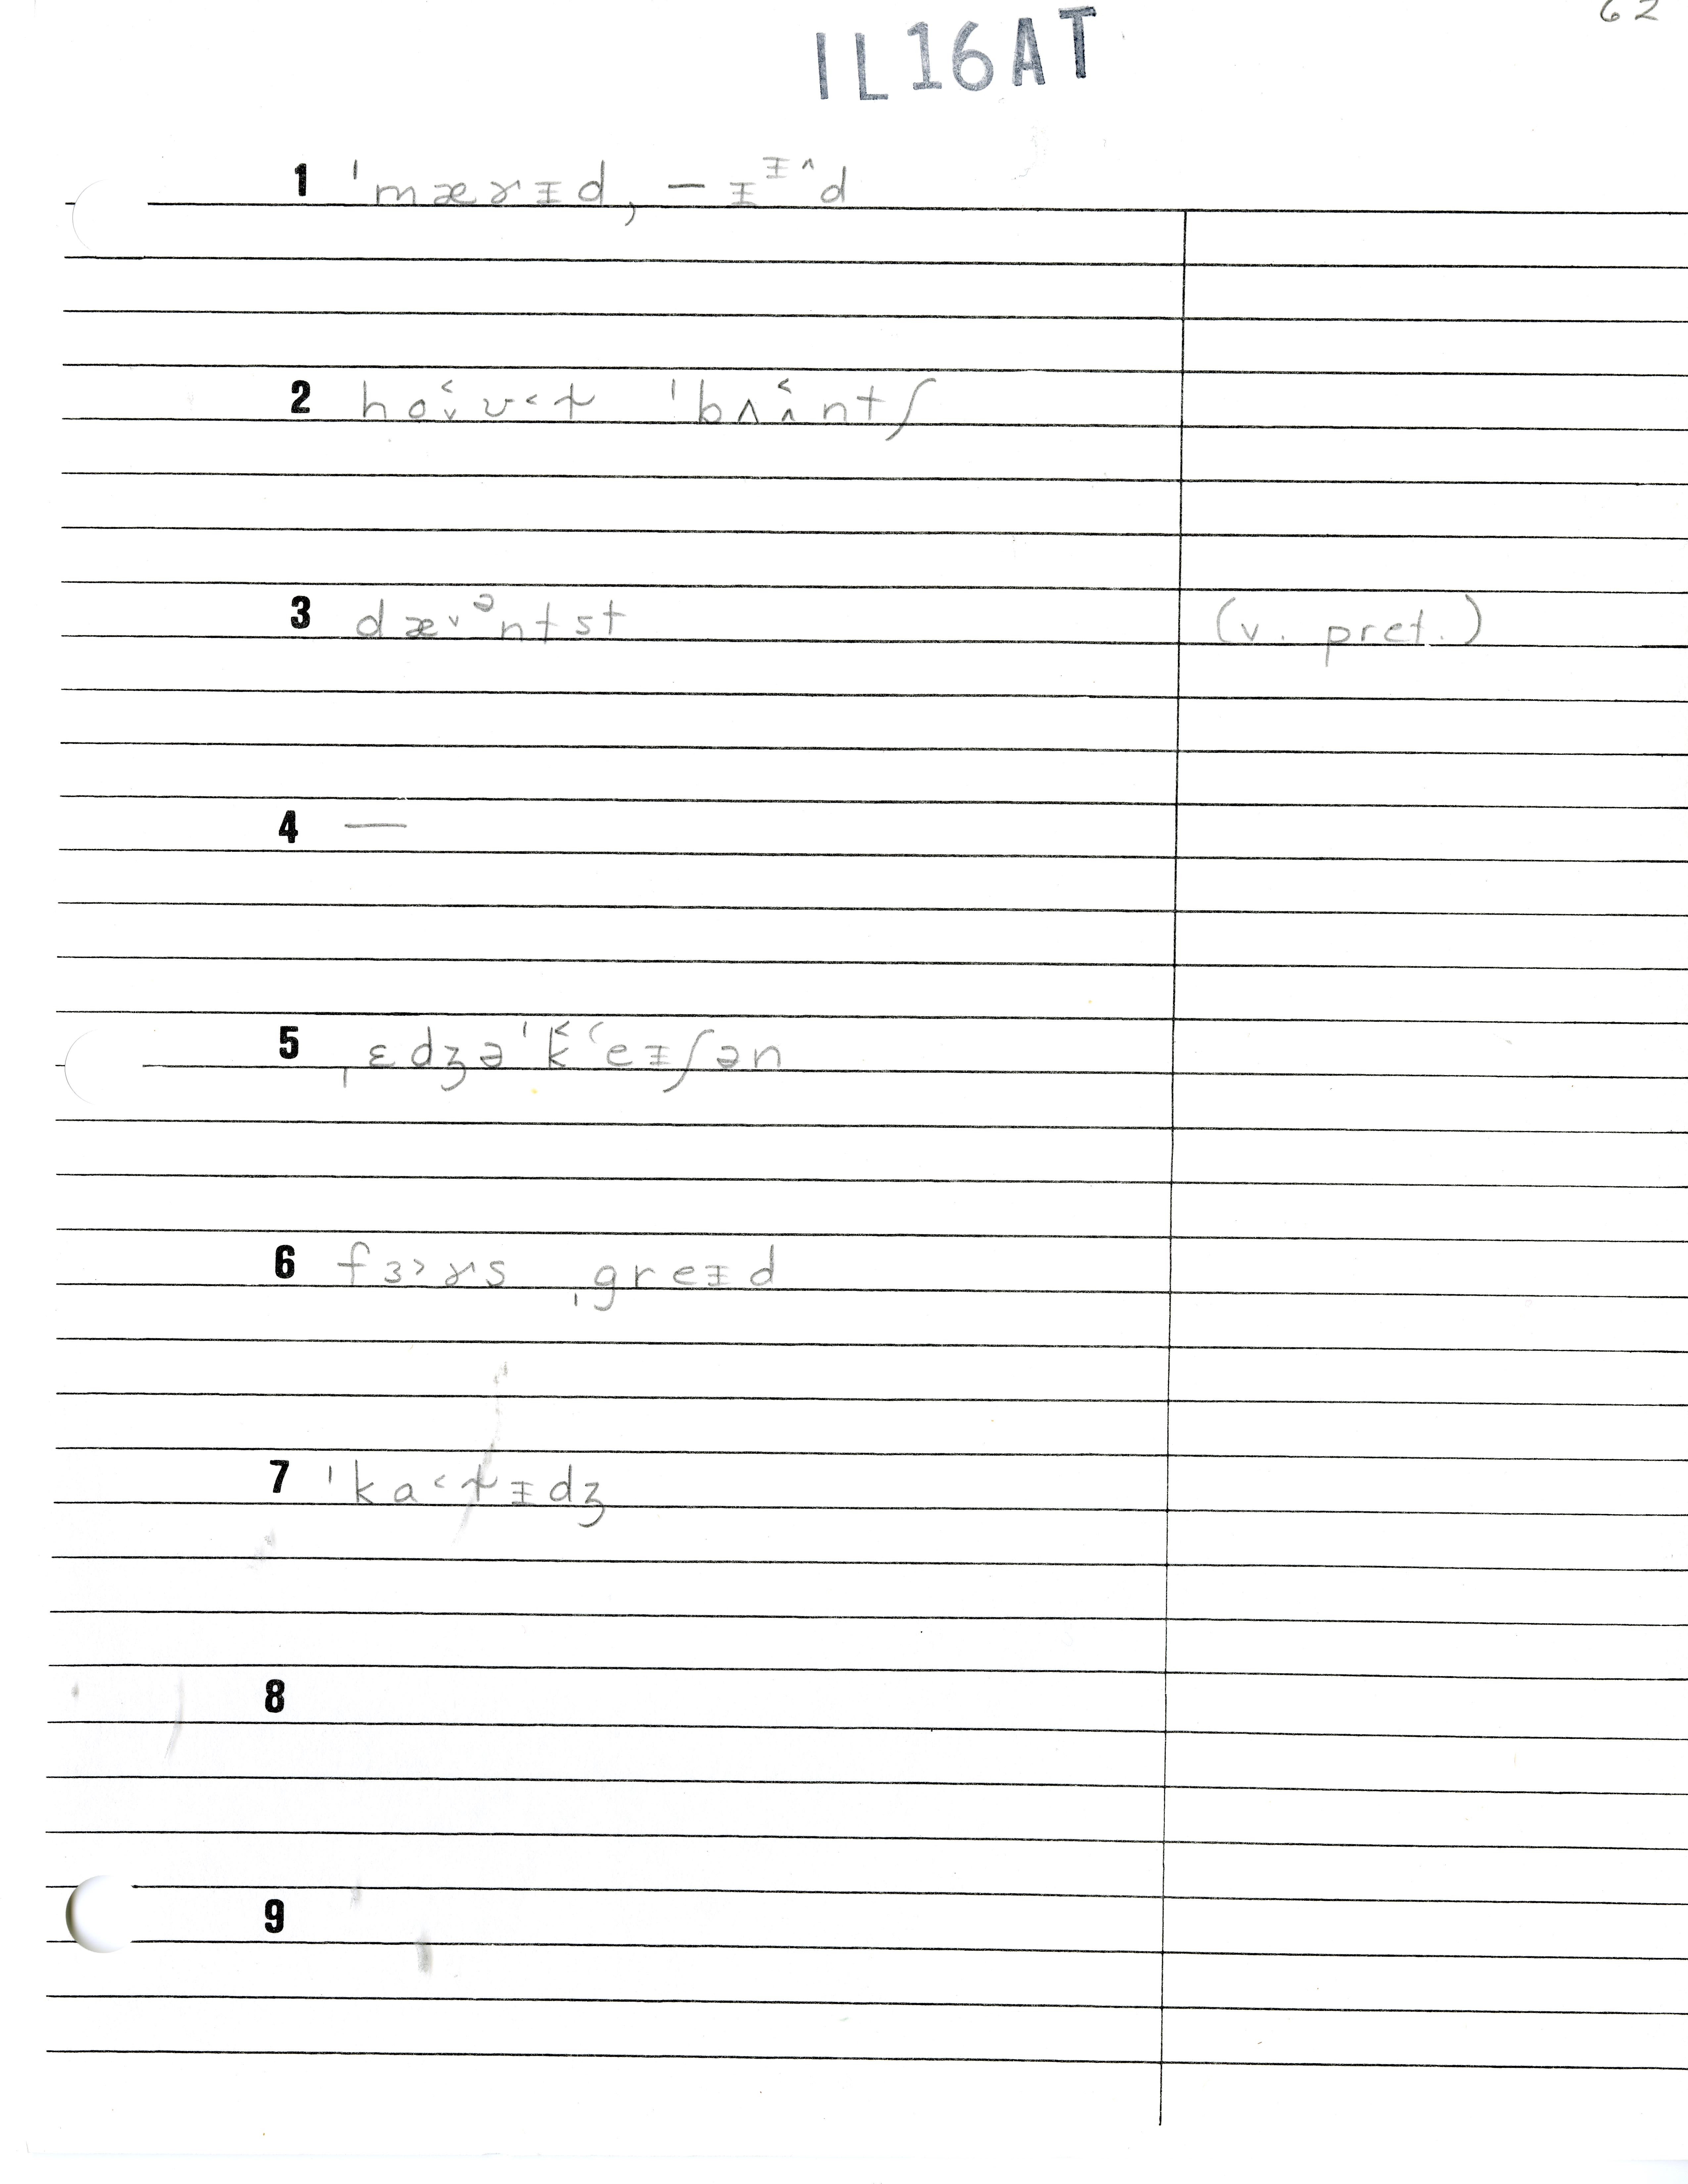 62
IL16AT
1 ˈmæɚᵻd, – ᵻᵻ^d
2 ho˂˅ʊ˂ɫ ˈbʌʌ˂^ntʃ
3 dæ˅ᵊntst (v. pret.)
4 —
5 ˌɛdʒəˈk˂ʻeᵻʃən
6 fɜ˃ɚs ˌgreᵻd
7 ˈka˂ɫᵻdʒ
8
9